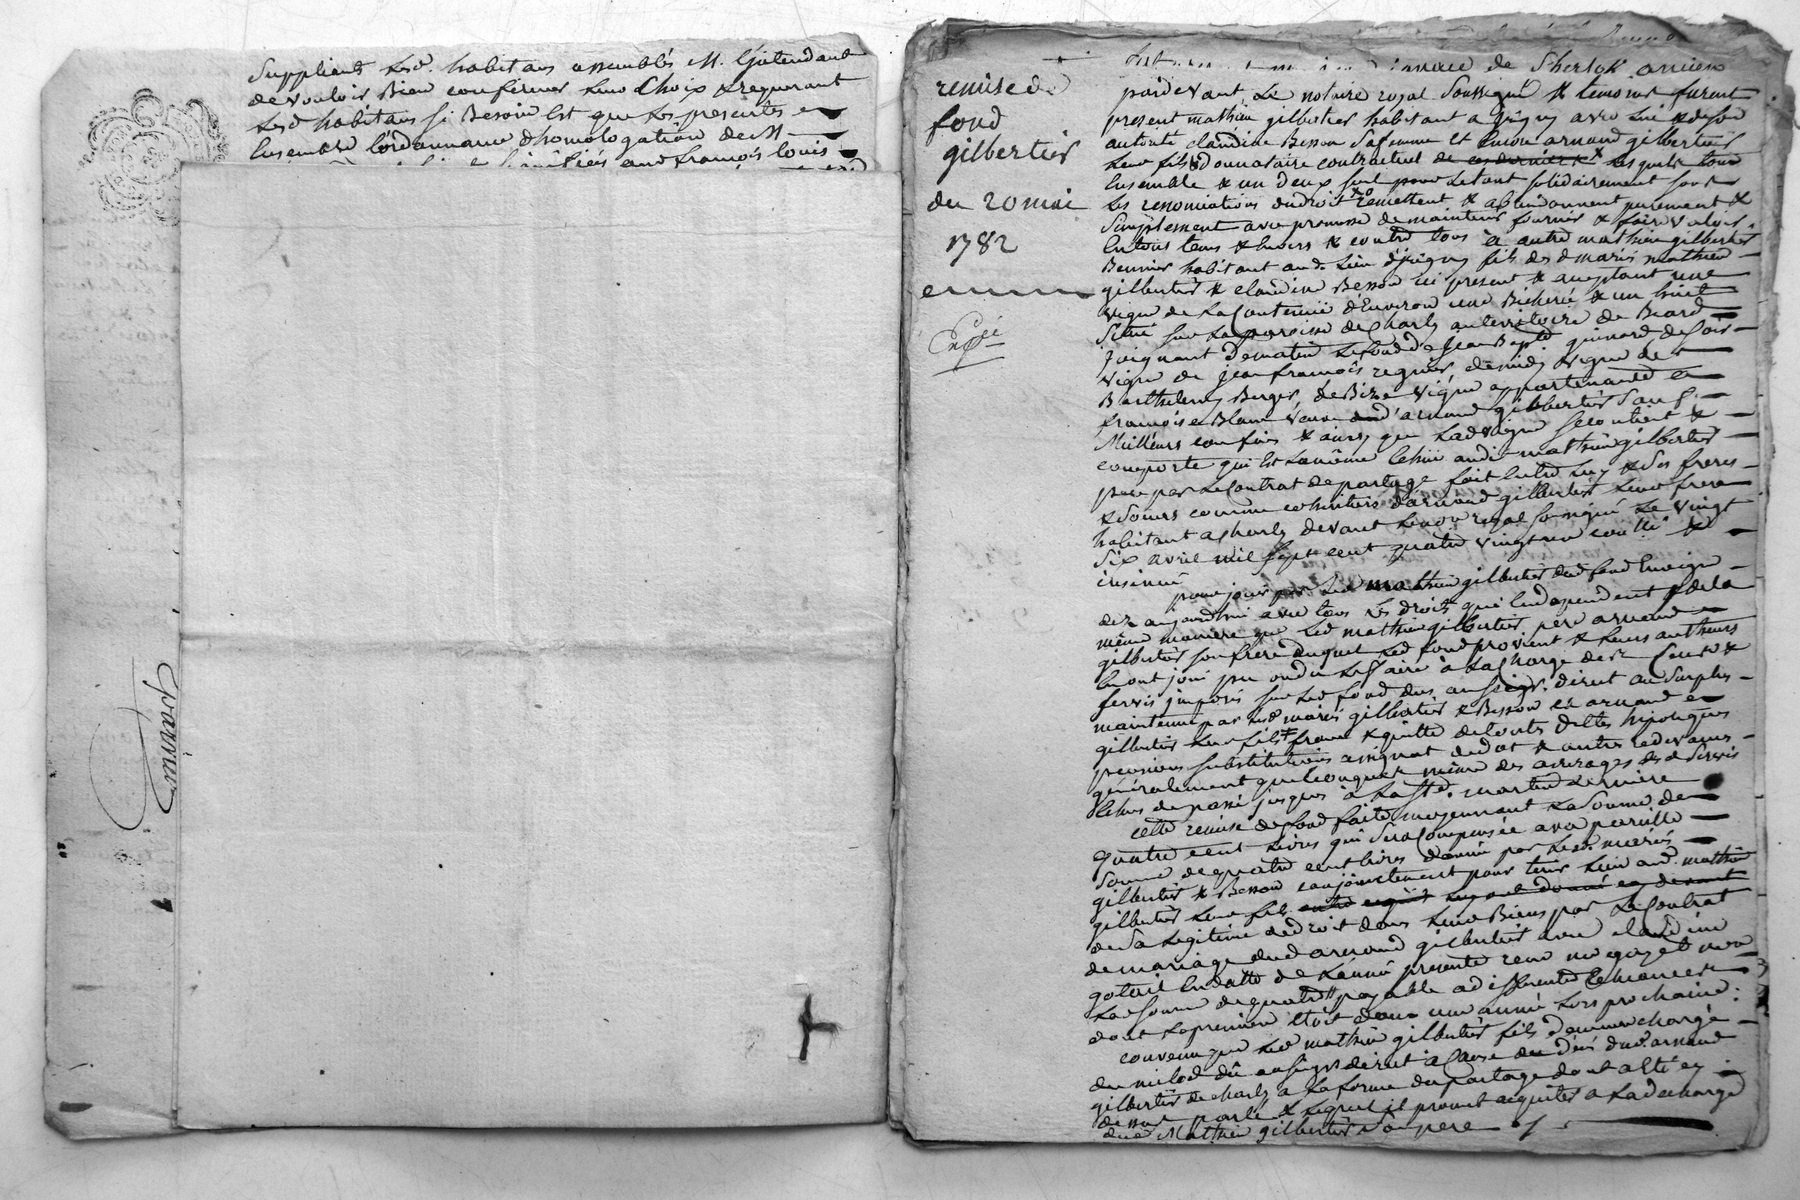 Suppliants lesd. habitans assemblés M. L'jntendant
de vouloir Bien confirmer leur Choix & requerant
lesd habitans si Besoin Est que les presentes
Ensemble l'ordonnance d'homologation de M
and françois louis
remise de
fond
gilbertier
du 20 mai
1782
de Sherlok ancien
pardevant Le notaire royal Soussigné & temoins furent
present mathieu gilbertier habitant a
autorité claudine Besson Sa femme Et Encore arnaud gilbertier
leur fils donnataire contractuel de lesquels tous
Ensemble & un Deux seul pour le tout solidairement sous
les renonciations du droit remettent & abandonnent purement &
Simplement avec promesse de maintenir fournir & faire valoir
En tous tems & Envers & contre tous à autre mathieu gilbertier
habitant aud. lieu fils des d mariés mathieu
gilbertier & claudine Besson ici present & acceptant une
vigne de la Contenue d'Environ une Bicherée & un huit
Situé sur la paroisse de Charly au territoire de
joignant de matin le fond de Jean Bapte
vigne de jean françois regnier, de midy vigne de
Barthelemy Berger, de Bize vigne appartenante a
françoise Blanc veuve d'arnaud gilbertier Sauf
Meilleurs confins & ainsy que lad vigne se contient &
comporte qui Est la même Echue audit mathieu gilbertier
pere par le Contrat de partage fait Entre Luy & Ses freres
& Soeurs comme cohéritiers d'arnaud gilbertier leur frere
habitant a Charly devant le no.re royal soussigné Le vingt
Six avril mil Sept cent quatre vingt un &
insinué
pour jouir par led mathieu gilbertier dud fond En vigne
dez aujourdhui avec tous les droits qui En dependent & de la
même maniere que led mathieu gilbertier pere arnaud
gilbertier son frere duquel led fond provient & leurs autheurs
En ont joui pu ou dû le faire à la Charge des Cens &
servis jmposés sur led fond dus au Seigr. direct au Surplus
maintenu par lesd mariés gilbertier & Besson & arnaud
gilbertier leur fils franc & quitte de toutes dettes hipoteques
pensions substitutions assignat de dot & autres redevances
généralement quelconques même des arrerages des d Servis
Echus du passé jusques à la St. martin derniere
cette remise de fond faite moyennant la Somme de
quatre cent Livres qui Sera Compensée avec pareille
Somme de quatre cent livres donnée par lesd. mariés
gilbertier & Besson conjointement pour tenir lieu aud. mathieu
gilbertier leur fils
de Sa Legitime de droit dans leurs Biens par le Contrat
de mariage dud arnaud gilbertier avec claudine
En datte de l'année presente
La Somme de quatre payable a differentes Echeances
dont la premiere Etoit dans une année Lors prochaine:
convenu que led mathieu gilbertier fils demeure chargé
du milod dû au Seigr. direct à Cause du décès dud. arnaud
gilbertier de Charly a la forme du partage dont a été cy
dessus parlé & lequel il promet acquiter a la decharge
dud Mathieu gilbertier Son pere